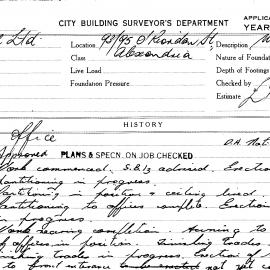 CITY BUILDING SURVEYOR'S DEPARTMENT
APPLICA
YEAR
Ltd
Location 93/95 O'Riordan St,
Description
Class Alexandria
Nature of Foundat
Live Load
Depth of Footings
Foundation Pressure
Checked by
Estimate
HISTORY
Office
Approved PLANS & SPECN. ON JOB CHECKED
Work commenced. S.B/3 advised. Erection
partitioning in progress.
Partitions in position, ceiling lined.
Partitioning to offices complete. Erection
in progress.
Work nearing completion. Awning to
offices in position. Finishing trades
trades in progress. Erection of
to front entrance not yet